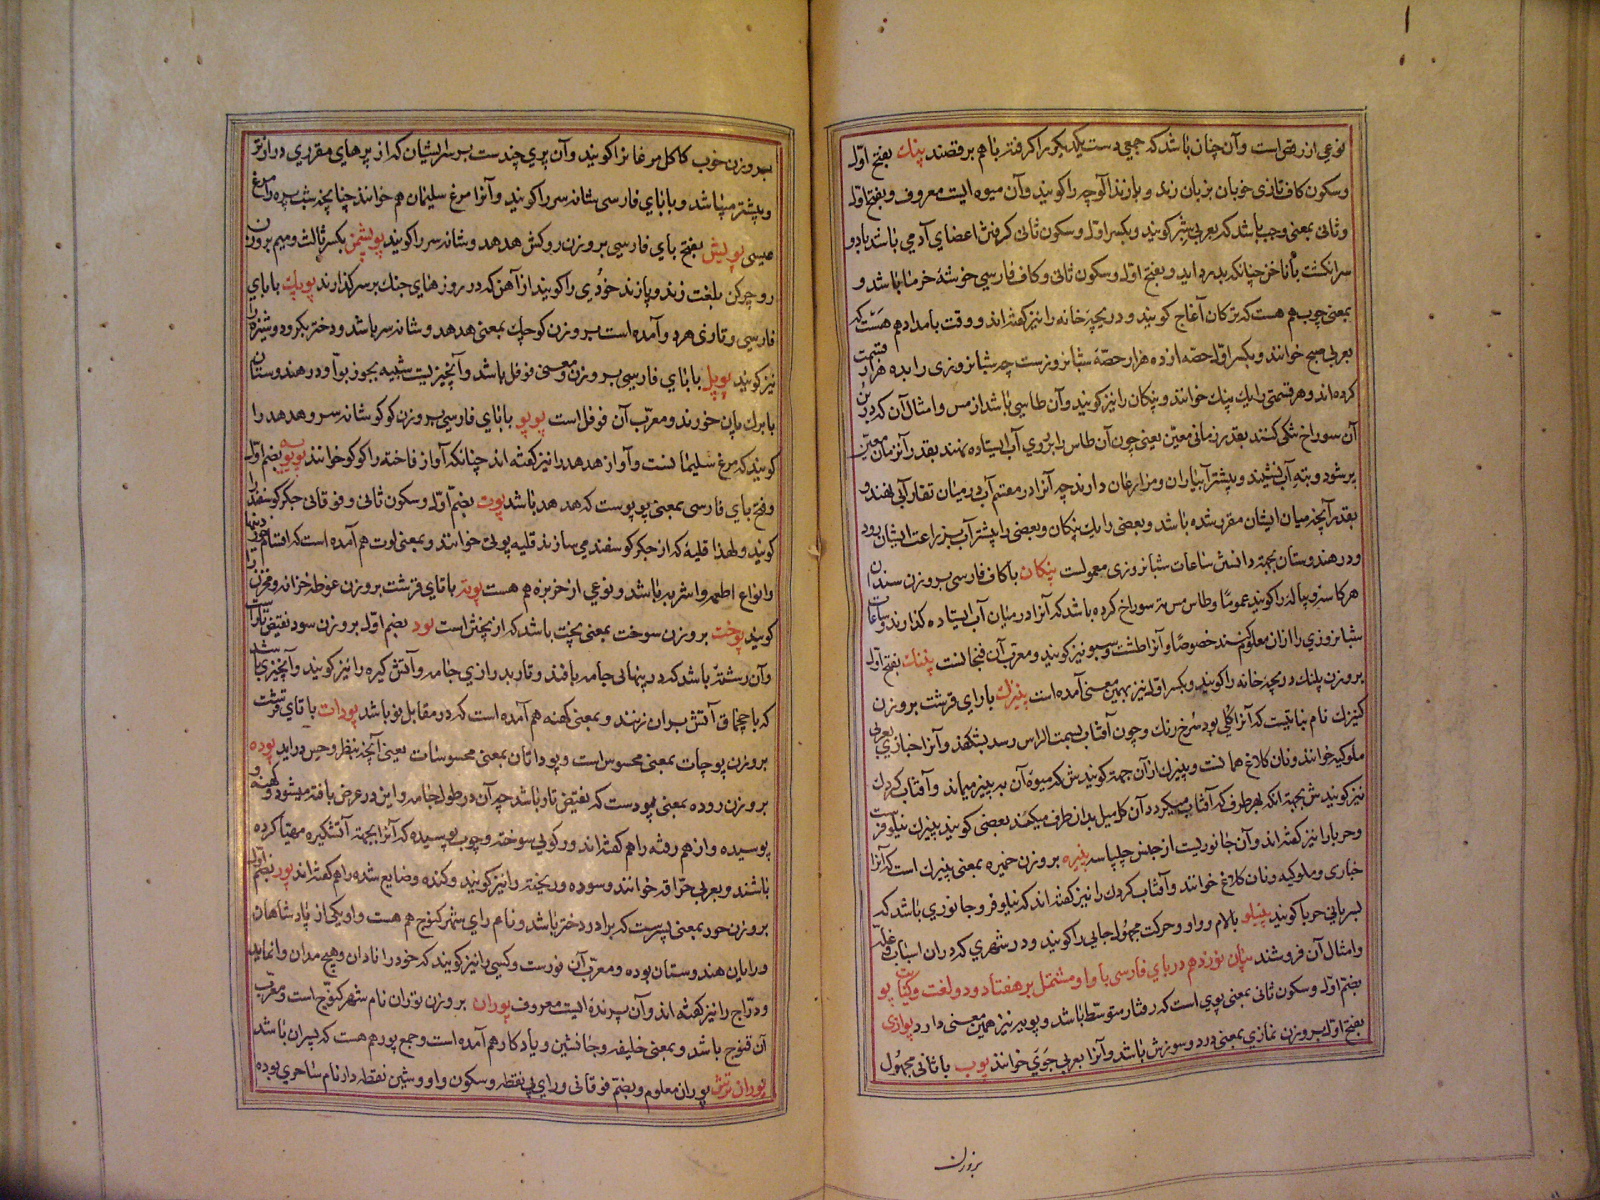 نوعی از رقص است و آن چنان باشد که جمعی دست یکدیگر را گرفته با هم برقصند پنک بفتح اول
و سکون کاف تازی خوبان بزبان زند و پازند آلوچه را گویند و آن میوه ایست معروف و بفتح اول
و ثانی بمعنی وجب باشد که بعربی شبر گویند و بکسر اول و سکون ثانی گرفتن اعضای آدمی باشد با دو
سر انگشت با ناخن چنانکه بدرد اید و بفتح اول و سکون ثانی و کاف فارسی خوشهٔ خرما باشد و
بمعنی چوب هم هست که ترکان آغاج گویند و دریچهٔ خانه را نیز گفته اند و وقت بامداد هم هست که
بعربی صبح خوانند و بکسر اول حصه از ده هزار حصهٔ شبانروزست چه شبانروزی را بده هزار قسمت
کرده اند و هر قسمتی را یک پنک خوانند و پنکان را نیز گویند و آن طاسی باشد از مس و امثال آن که در بن
آن سوراخی کنند بقدر زمانی معین یعنی چون آن طاس را بر روی آب ایستاده نهند بقدر آن زمان معین
پر شود و بته آب نشیند و بیشتر آبیاران و مزارعان دارند چه آنرا در مقسم آب در میان تغار آبی نهند و
بقدر آنچه میان ایشان مقرر شده باشد و بعضی را یک پنکان و بعضی را بیشتر آب بزراعت ایشان رود
و در هندوستان بجهة دانستن ساعات شبانروزی معمولست پنکان با کاف فارسی بر وزن سندان
هر کاسه و پیاله را گویند عموما و طاس مس ته سوراخ کرده باشد که آنرا در میان آب ایستاده گذارند و ساعات
شبانروزی را از ان معلوم کنند خصوصا و آنرا طشت و سبو نیز گویند و معرب آن فنجانست پننک بفتح اول
بر وزن پلنک دریچه خانه را گویند و بکسر اول نیز بهمین معنی آمده است پنیرک با رای قرشت بر وزن
کنیزک نام نباتیست که آنرا گلی بود سرخ رنک و چون آفتاب بسمت الراس رسد بشکفد و آنرا خبازی بعربی
ملوکیه خوانند و نان کلاغ همانست و پنیرک از آن جهة گویندش که میوهٔ آن به پنیر میماند و آفتاب کردک
نیز گویندش بجهة انکه بهر طرف که آفتاب میگردد آن گل میل بدان طرف میکند بعضی گویند پنیرک نیلوفرست
و حربا را نیز گفته اند و آن جانوریست از جنس چلپاسه پنیره بر وزن خمیره بمعنی پنیرک است که آنرا
خبازی و ملوکیه و نان کلاغ خوانند و آفتاب کردک را نیز گفته اند که نیلوفر و جانوری باشد که
بسریانی حربا گویند پنیلو بالام و واو و حرکت مجهول جایی را گویند و در شهری که در ان اسباب و غله
و امثال آن فروشند بیان نوزدهم در بای فارسی با واو مشتمل بر هفتاد و دو لغت و کنایت پو
بضم اول و سکون ثانی بمعنی پوی است که رفتار متوسط باشد و پویه نیز همین معنی دارد پوازی
بفتح اول بر وزن نمازی بمعنی درد و سوزش باشد و آنرا بعربی جوی خوانند پوب با ثانی مجهول
بر وزن
بر وزن خوب کاکل مرغانرا گویند و آن پری چندست بر سر ایشان که از پرهای مقرری دراز تر
و بیشتر میباشد و با بای فارسی شانه سر را گویند و آنرا مرغ سلیمان هم خوانند چنانچه شب پره را مرغ
عیسی پوپش بفتح بای فارسی بر وزن روکش هدهد و شانه سر را گویند پوپشمن بکسر ثالث و میم بر وزن
روچرکن بلغت زند و پازند خودی را گویند از آهن که در روزهای جنک بر سر گذارند پوپک با بای
فارسی و تازی هر دو آمده است بر وزن کوچک بمعنی هدهد و شانه سر باشد و دختر بکر و دوشیزه را
نیز گویند پوپل با بای فارسی بر وزن و معنی فوفل باشد و آنچیزیست شبیه بجوز بوا و در هندوستان
با برک پان خورند و معرب آن فوفل است پوپو با بای فارسی بر وزن کوکو شانه سر و هدهد را
گویند که مرغ سلیمانست و آواز هدهد را نیز گفته اند چنانکه آواز فاخته را کوکو خوانند پوپویه بضم اول
و فتح بای فارسی بمعنی پوپوست که هدهد باشد پوت بضم اول و سکون ثانی و فوقانی جگر گوسفند را
گویند و لهذا قلیهٔ که از جگر گوسفند می سازند قلیه پوتی خوانند و بمعنی لوت هم آمده است که اقسام خوردنیها
و انواع اطعمه و اشربه باشد و نوعی از خربزه هم هست پوته با تای قرشت بر وزن غوطه خزانه و مخزن را
گویند پوخت بر وزن سوخت بمعنی پخت باشد که از پختن است پود بضم اول بر وزن سود نقیض تار است
و آن رشتهٔ باشد که در پهنای جامه بافند و تار بدرازی جامه و آتش گیره را نیز گویند و آنچیزی باشد
که با چخماق آتش بر ان زنند و بمعنی کهنه هم آمده است که در مقابل نو باشد پودات با تای قرشت
بر وزن پوچات بمعنی محسوس است و پوداتان بمعنی محسوسات یعنی آنچه بنظر و حس دراید پوده
بر وزن روده بمعنی پودست که نقیض تار باشد چه آن در طول جامه و این در عرض بافته میشود و کهنه و
پوسیده و از هم رفته را هم گفته اند و رکویی سوخته و چوب پوسیده که آنرا بجهة آتشگیره مهیا کرده
باشند و بعربی حراقه خوانند و سوده و ریخته را نیز گویند و گنده و ضایع شده را هم گفته اند پور بضم اول
بر وزن حور بمعنی پسرست که برادر دختر باشد و نام رای شهر کنوج هم هست و او یکی از پادشاهان
و رایان هندوستان بوده و معرب آن فورست و کسی را نیز گویند که خود را نادان و هیچ مدان وانماید
و دراج را نیز گفته اند و آن پرنده ایست معروف پوران بر وزن توران نام شهر کنوج است و معرب
آن قنوج باشد و بمعنی خلیفه و جانشین و یادکار هم آمده است و جمع پور هم هست که پسران باشد
پوران ترش پوران معلوم و بضم فوقانی و رای بی نقطه و سکون واو و شین نقطه دار نام ساحری بوده